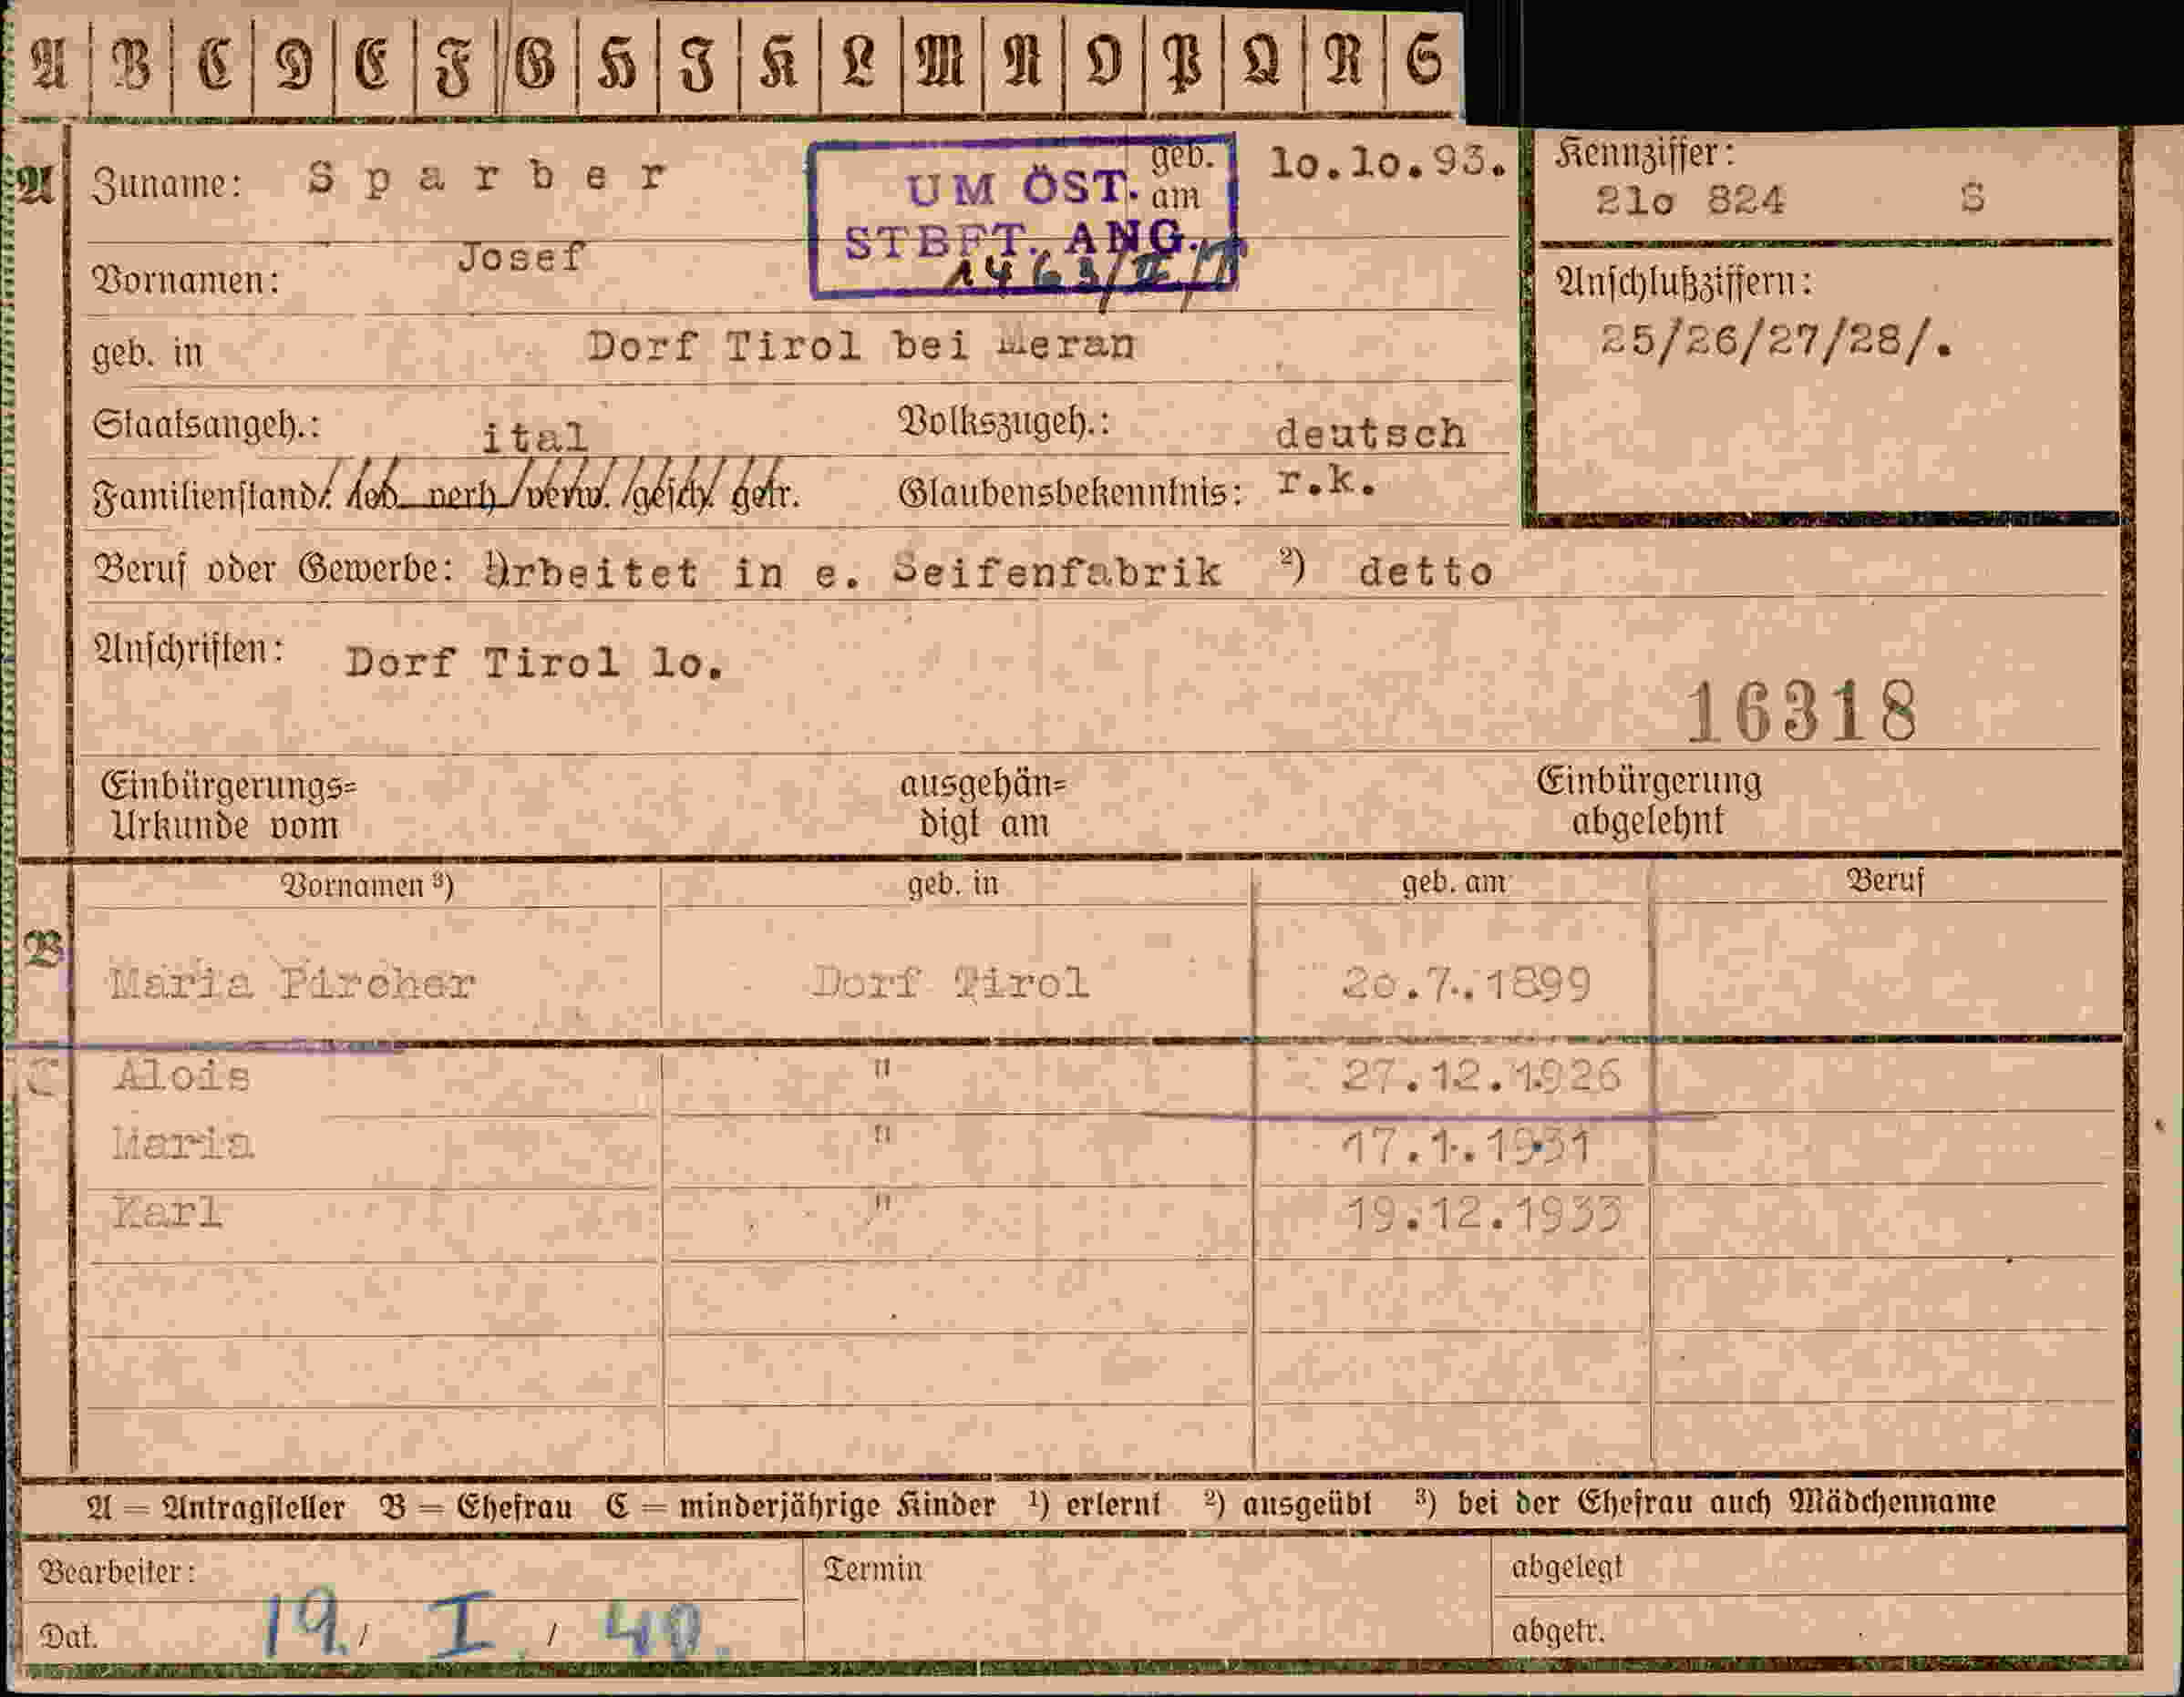 A B C D E F G H I K L M N O P Q R S
A Zuname: Sparber geb. am 10.10.93. Kennziffer:
UM ÖST. 21o 824 S
STBFT. ANG.
Vornamen: Josef Anschlußziffern:
25/26/27/28/.
geb. in Dorf Tirol bei Meran
Staatsangeh.: ital Volkszugeh.: deutsch
Familienstand: led. verh. verw. gesch. getr. Glaubensbekenntnis: r.k.
Beruf oder Gewerbe: ¹) Arbeitet in e. Seifenfabrik ²) detto
Anschriften: Dorf Tirol 1o.
16318
Einbürgerungs= ausgehän= Einbürgerung
Urkunde vom digt am abgelehnt
Vornamen ³) geb. in geb. am Beruf
B
Maria Pircher Dorf Tirol 20.7.1899
C Alois " 27.12.1926
Maria " 17.1.1931
Karl " 19.12.1933
A = Antragsteller B = Ehefrau C = minderjährige Kinder ¹) erlernt ²) ausgeübt ³) bei der Ehefrau auch Mädchenname
Bearbeiter: Termin abgelegt
Dat. 19./ I. / 40. abgetr.